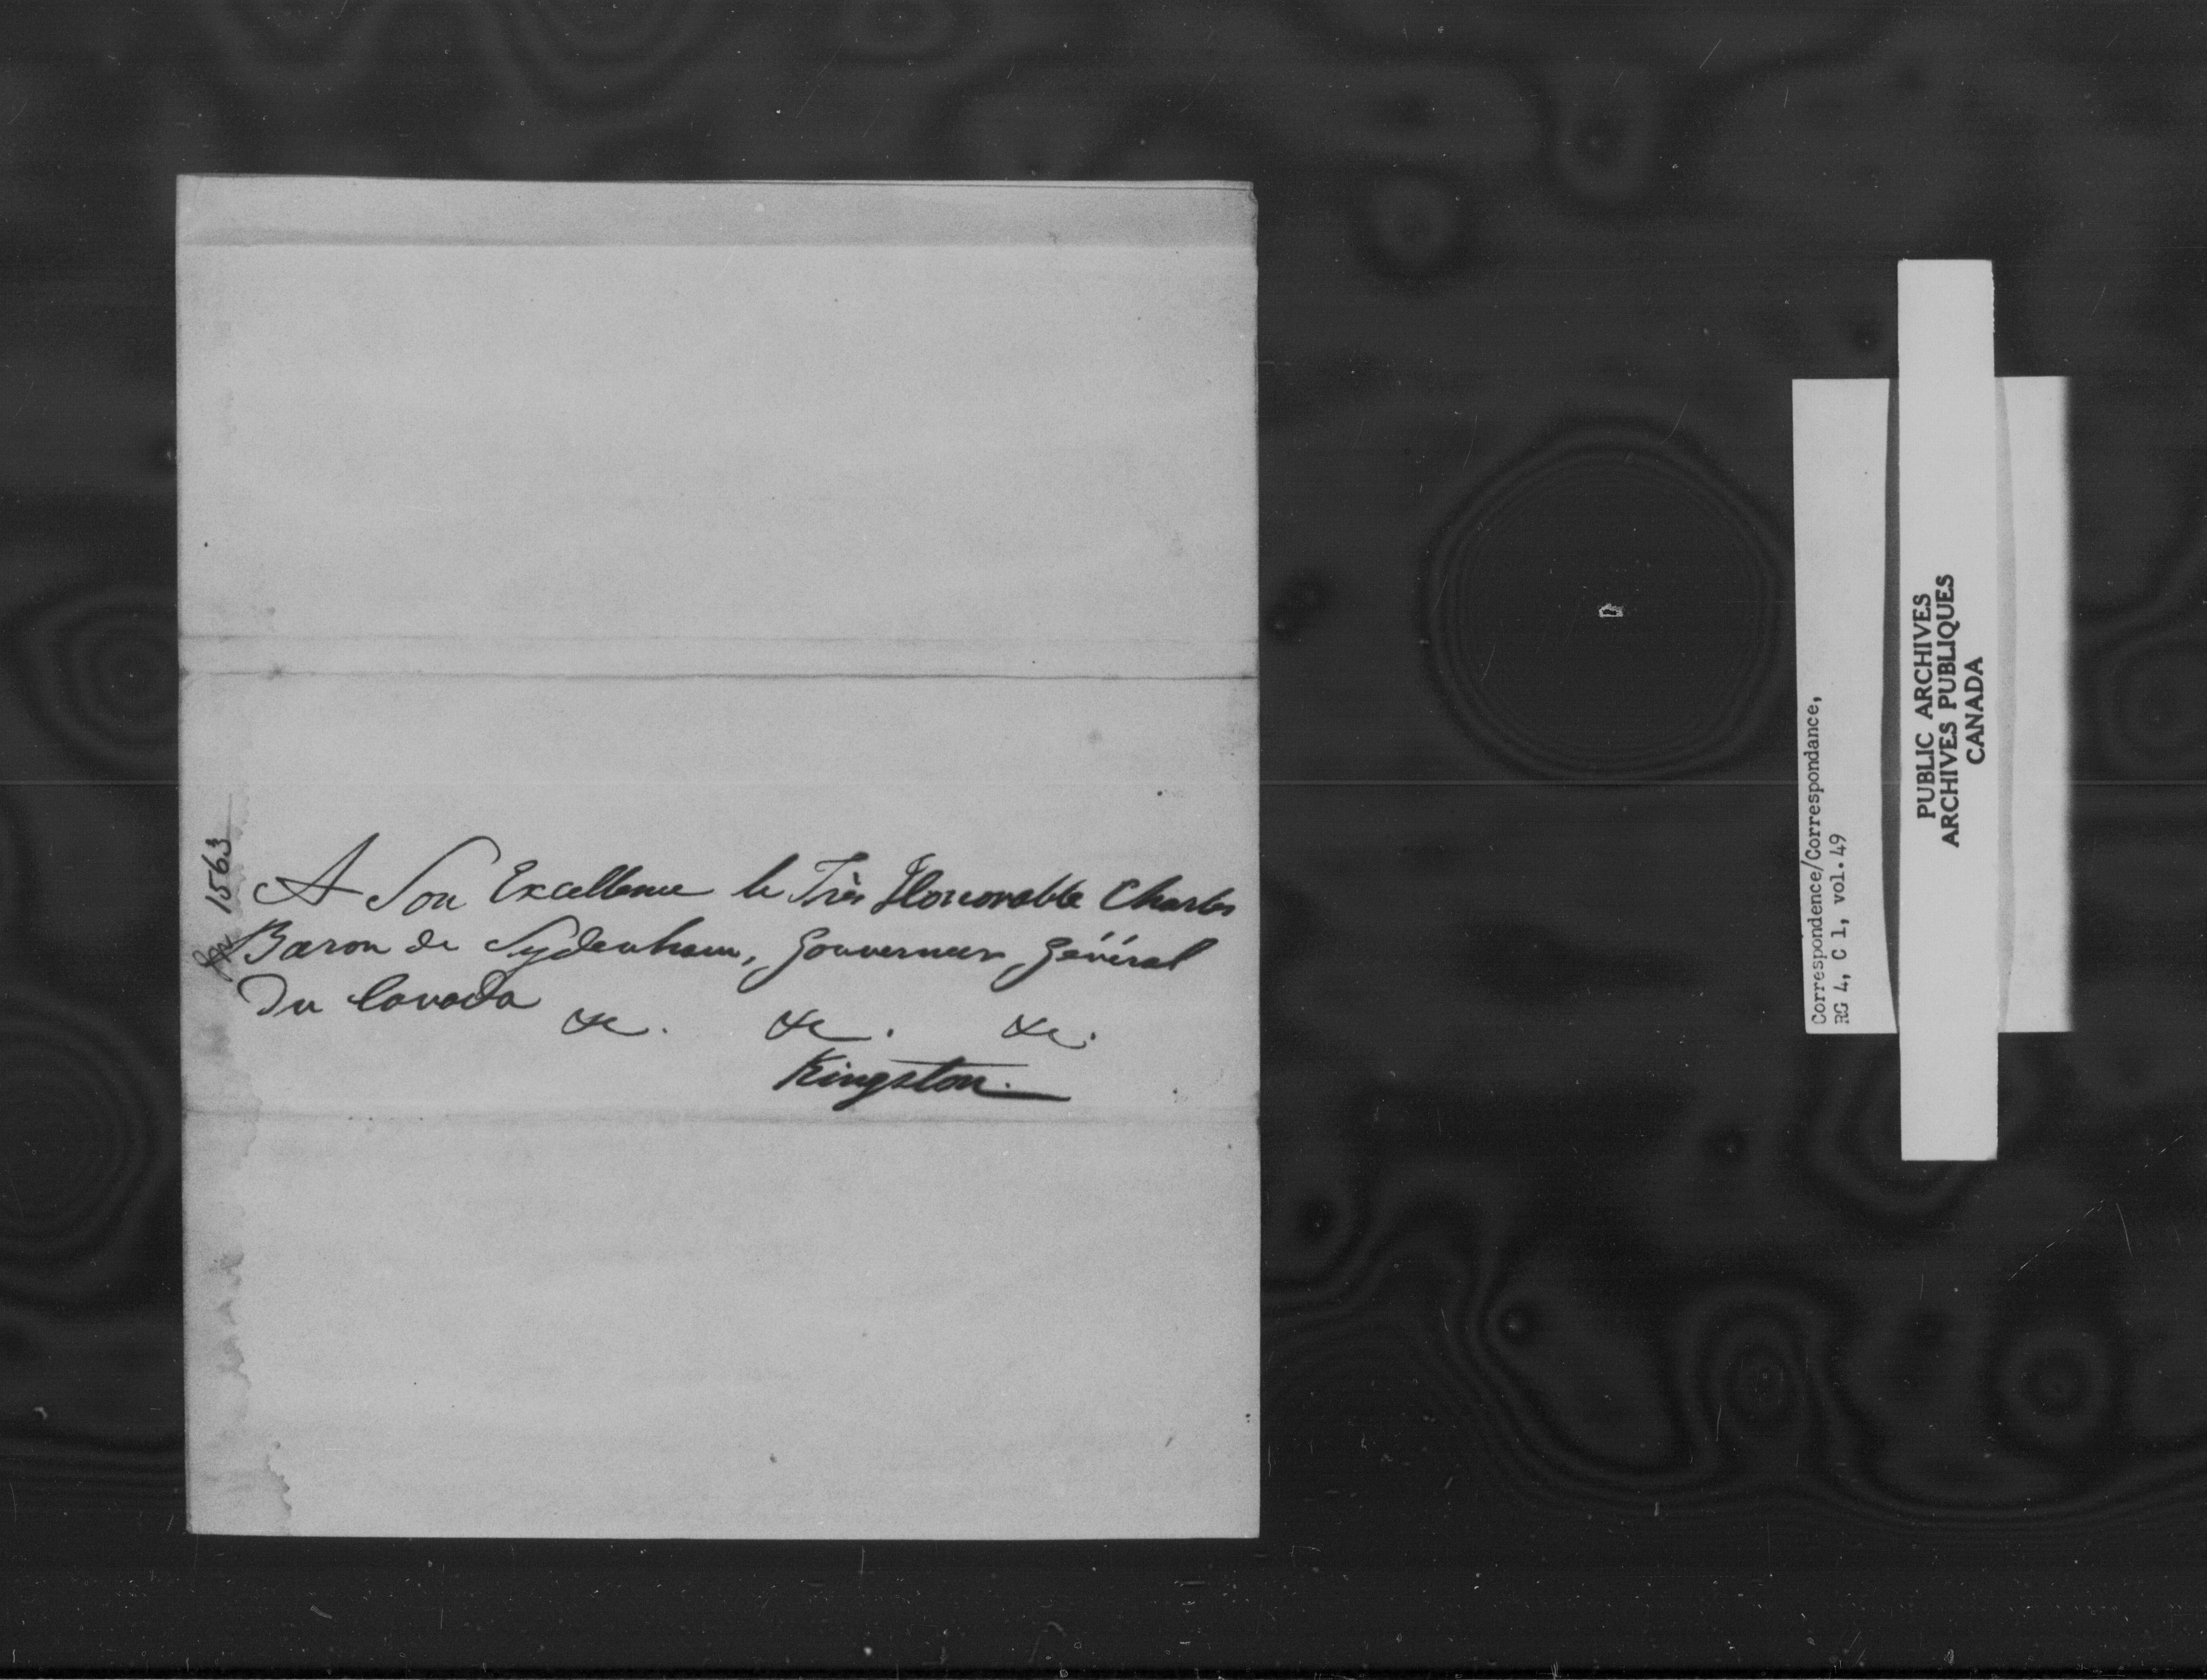 1563
A Son Excellence le Très Honorable Charles
Baron de Sydenham, Gouverneur Général
du Canada
&c. &c. &c.
Kingston.
Correspondence/Correspondance,
RG 4, C 1, vol. 49
PUBLIC ARCHIVES
ARCHIVES PUBLIQUES
CANADA